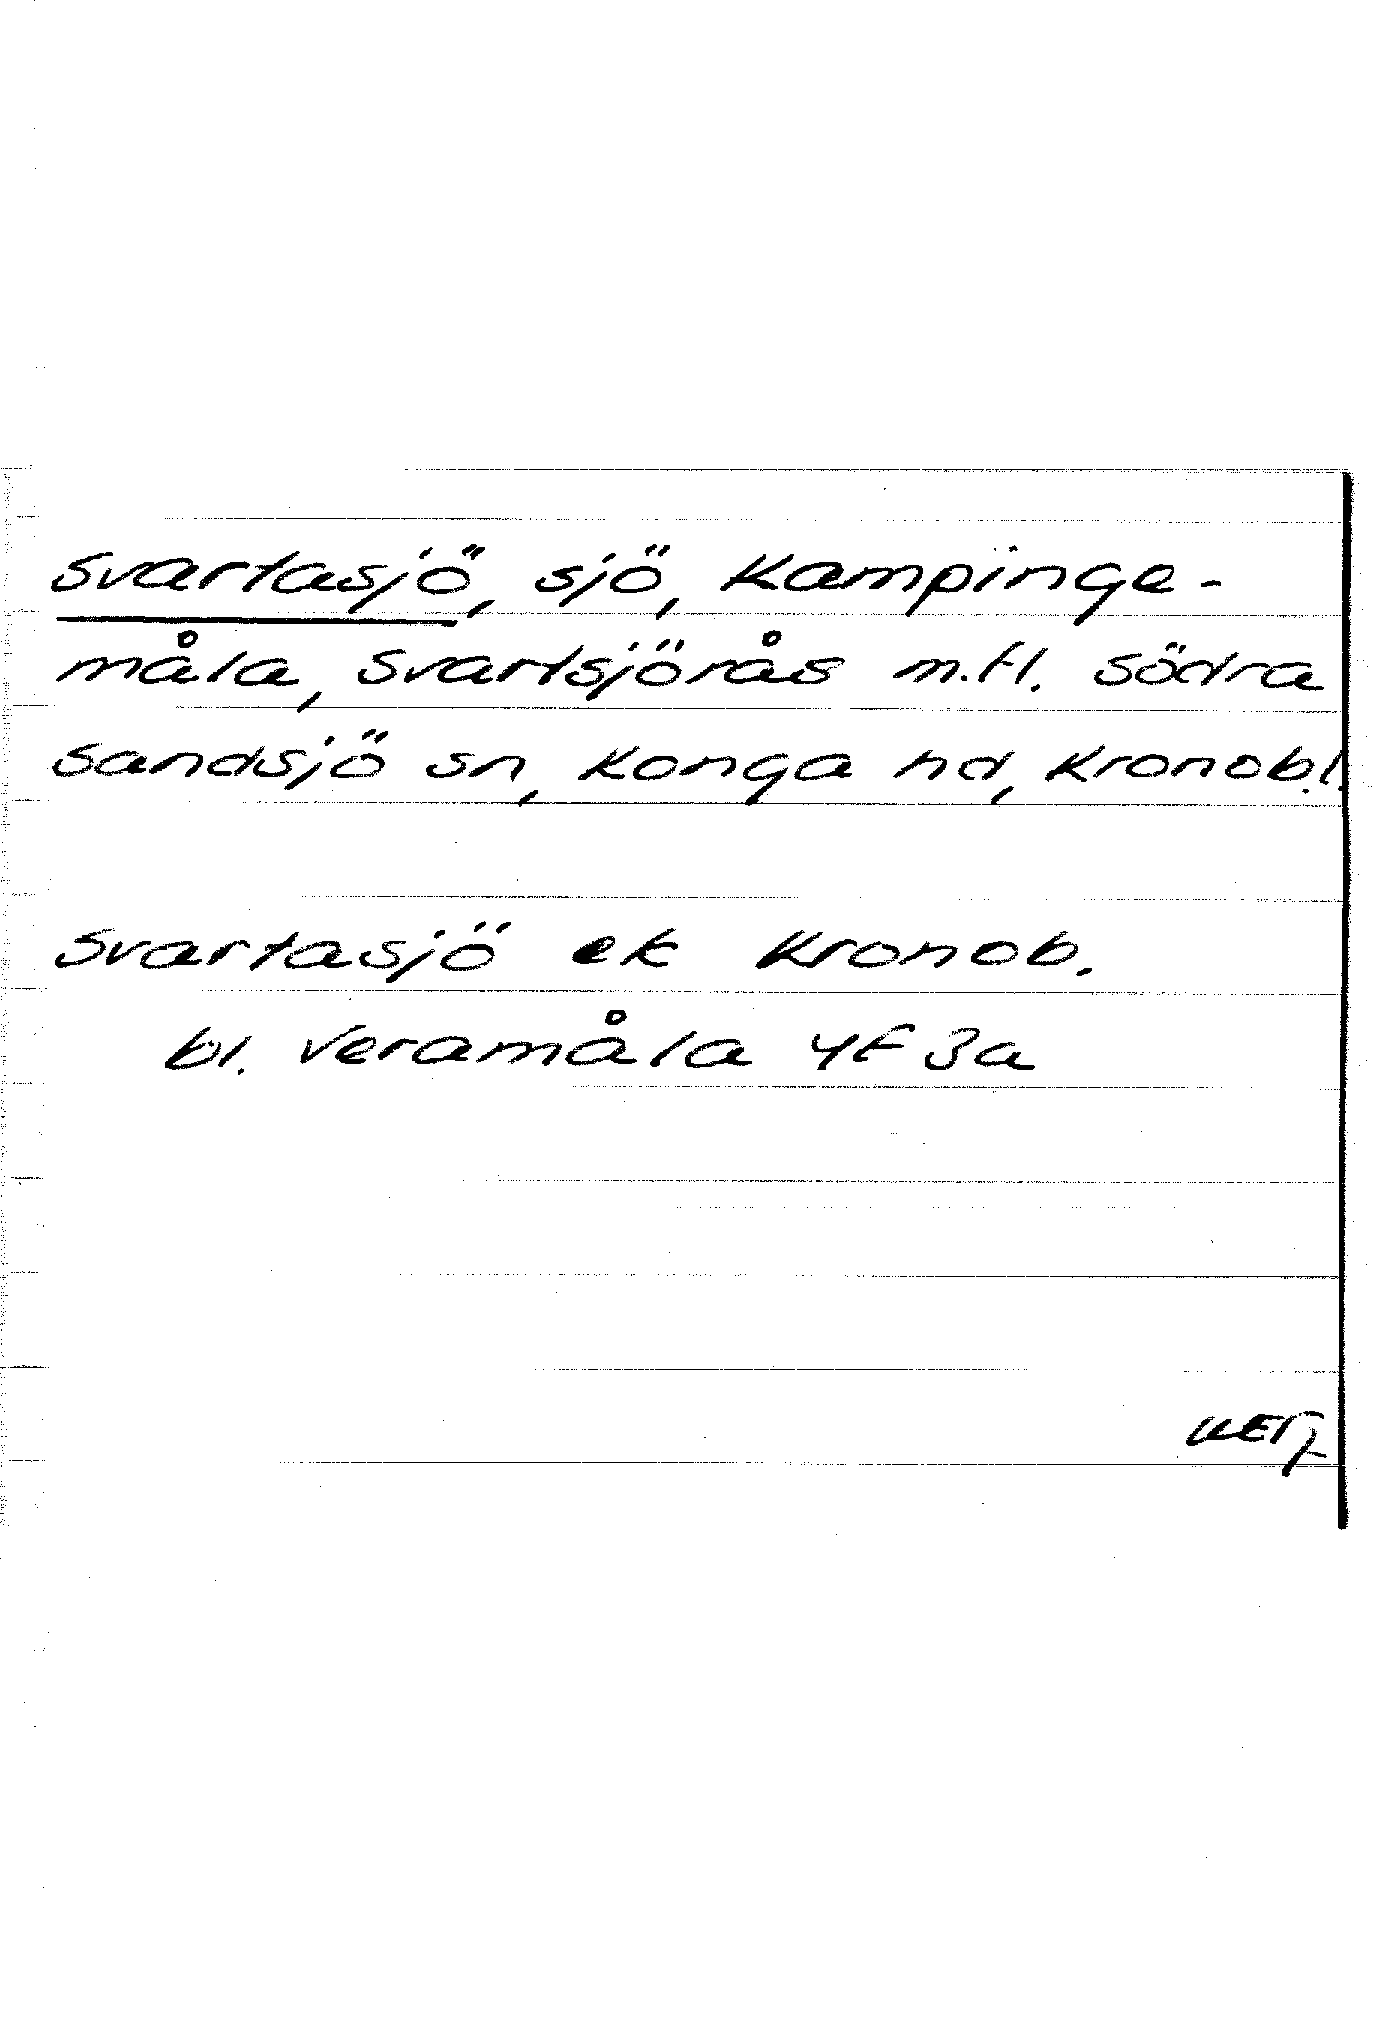 Svartasjö, sjö, Kampinge-
måla, Svartsjörås m.fl. Södra
Sandsjö sn, Konga hd, Kronob.l.
Svartasjö ek Kronob.
bl. Veramåla 4F 3a